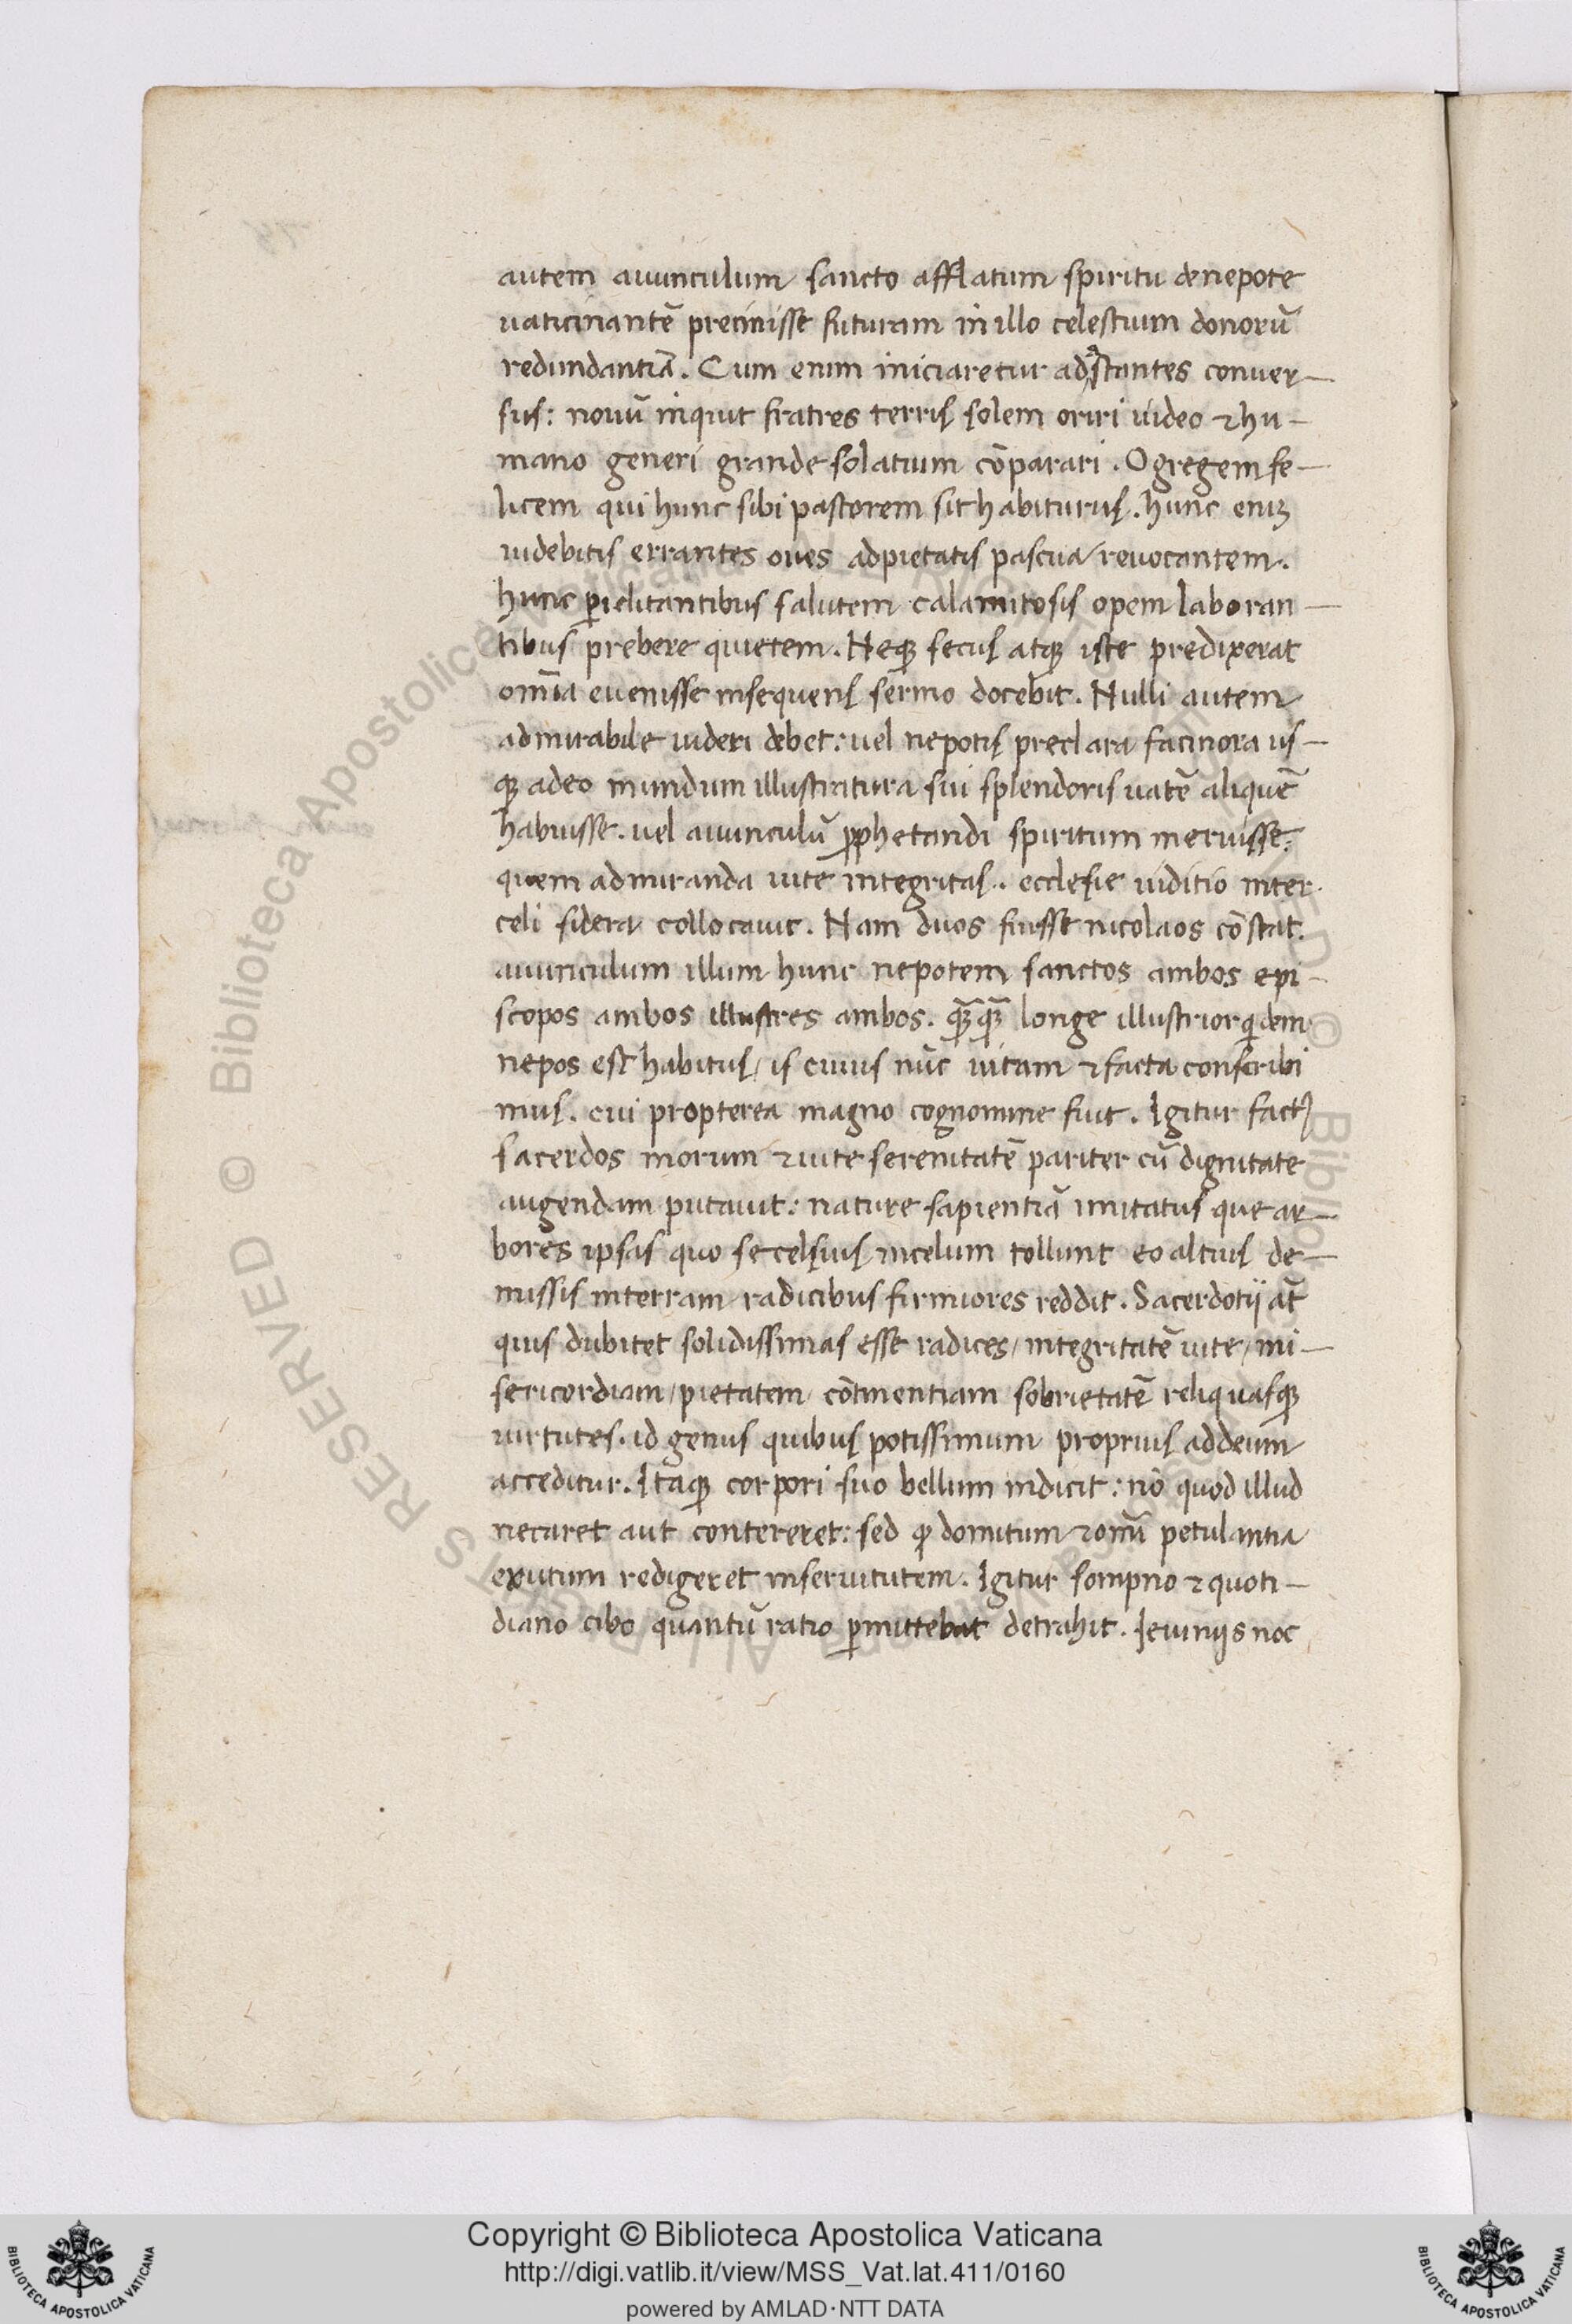 autem auunculum sancto afflatum spiritu de nepote
uaticinantē precinisse futuram in illo celestium donorū
redundantiā. Cum enim iniciaretur ad astantes conuer-
sus: nouū inquit fratres terris solem oriri uideo & hu-
mano generi grande solatium cōparari. O gregem fe-
licem qui hunc sibi pastorem sit habiturus. hunc eniꝫ
uidebitis errantes oues ad pietatis pascua reuocantem.
hunc ꝑiclitantibus salutem calamitosis opem laboran-
tibus prebere quietem. Neqꝫ secus atqꝫ iste predixerat
omīa euenisse insequens sermo docebit. Nulli autem
admirabile uideri debet: uel nepotis preclara facinora us-
qꝫ adeo mundum illustratura sui splendoris uatē aliquē
habuisse. uel auunculū ꝓphetandi spiritum meruisse.
quem admiranda uite integritas. ecclesie iuditio inter
celi sidera collocauit. Nam duos fuisse nicolaos cōstat.
auunculum illum hunc nepotem sanctos ambos epi-
scopos ambos illustres ambos. qꝫ̄qꝫ̄ longe illustrior qidem
nepos est habitus, is cuius nūc uitam & facta conscribi
mus. cui propterea magno cognomine fuit. Igitur factꝰ
sacerdos morum & uite serenitatē pariter cū dignitate
augendam putauit: nature sapientiā imitatus que ar-
bores ipsas quo se celsius in celum tollunt eo altius de-
missis in terram radicibus firmiores reddit. Sacerdotij āt
quis dubitet solidissimas esse radices, integritatē uite, mi-
sericordiam, pietatem, cōtinentiam sobrietatē reliquasqꝫ
uirtutes. id genus quibus potissimum proprius ad deum
acceditur. Itaqꝫ corpori suo bellum indicit: nō quod illud
necaret aut contereret: sed qꝫ domitum & omī petulantia
exutum redigeret in seruitutem. Igitur sompno & quoti-
diano cibo quantū ratio ꝑmittebat detrahit. Ieiunijs noc
Copyright © Biblioteca Apostolica Vaticana
http://digi.vatlib.it/view/MSS_Vat.lat.411/0160
powered by AMLAD·NTT DATA
BIBLIOTECA APOSTOLICA VATICANA
BIBLIOTECA APOSTOLICA VATICANA